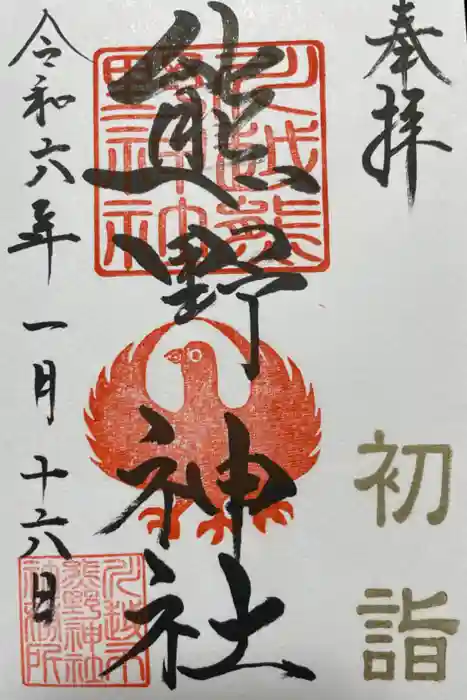 奉拝
初詣
熊野神社
川越熊野神社
川越市熊野神社社務所
令和六年一月十六日